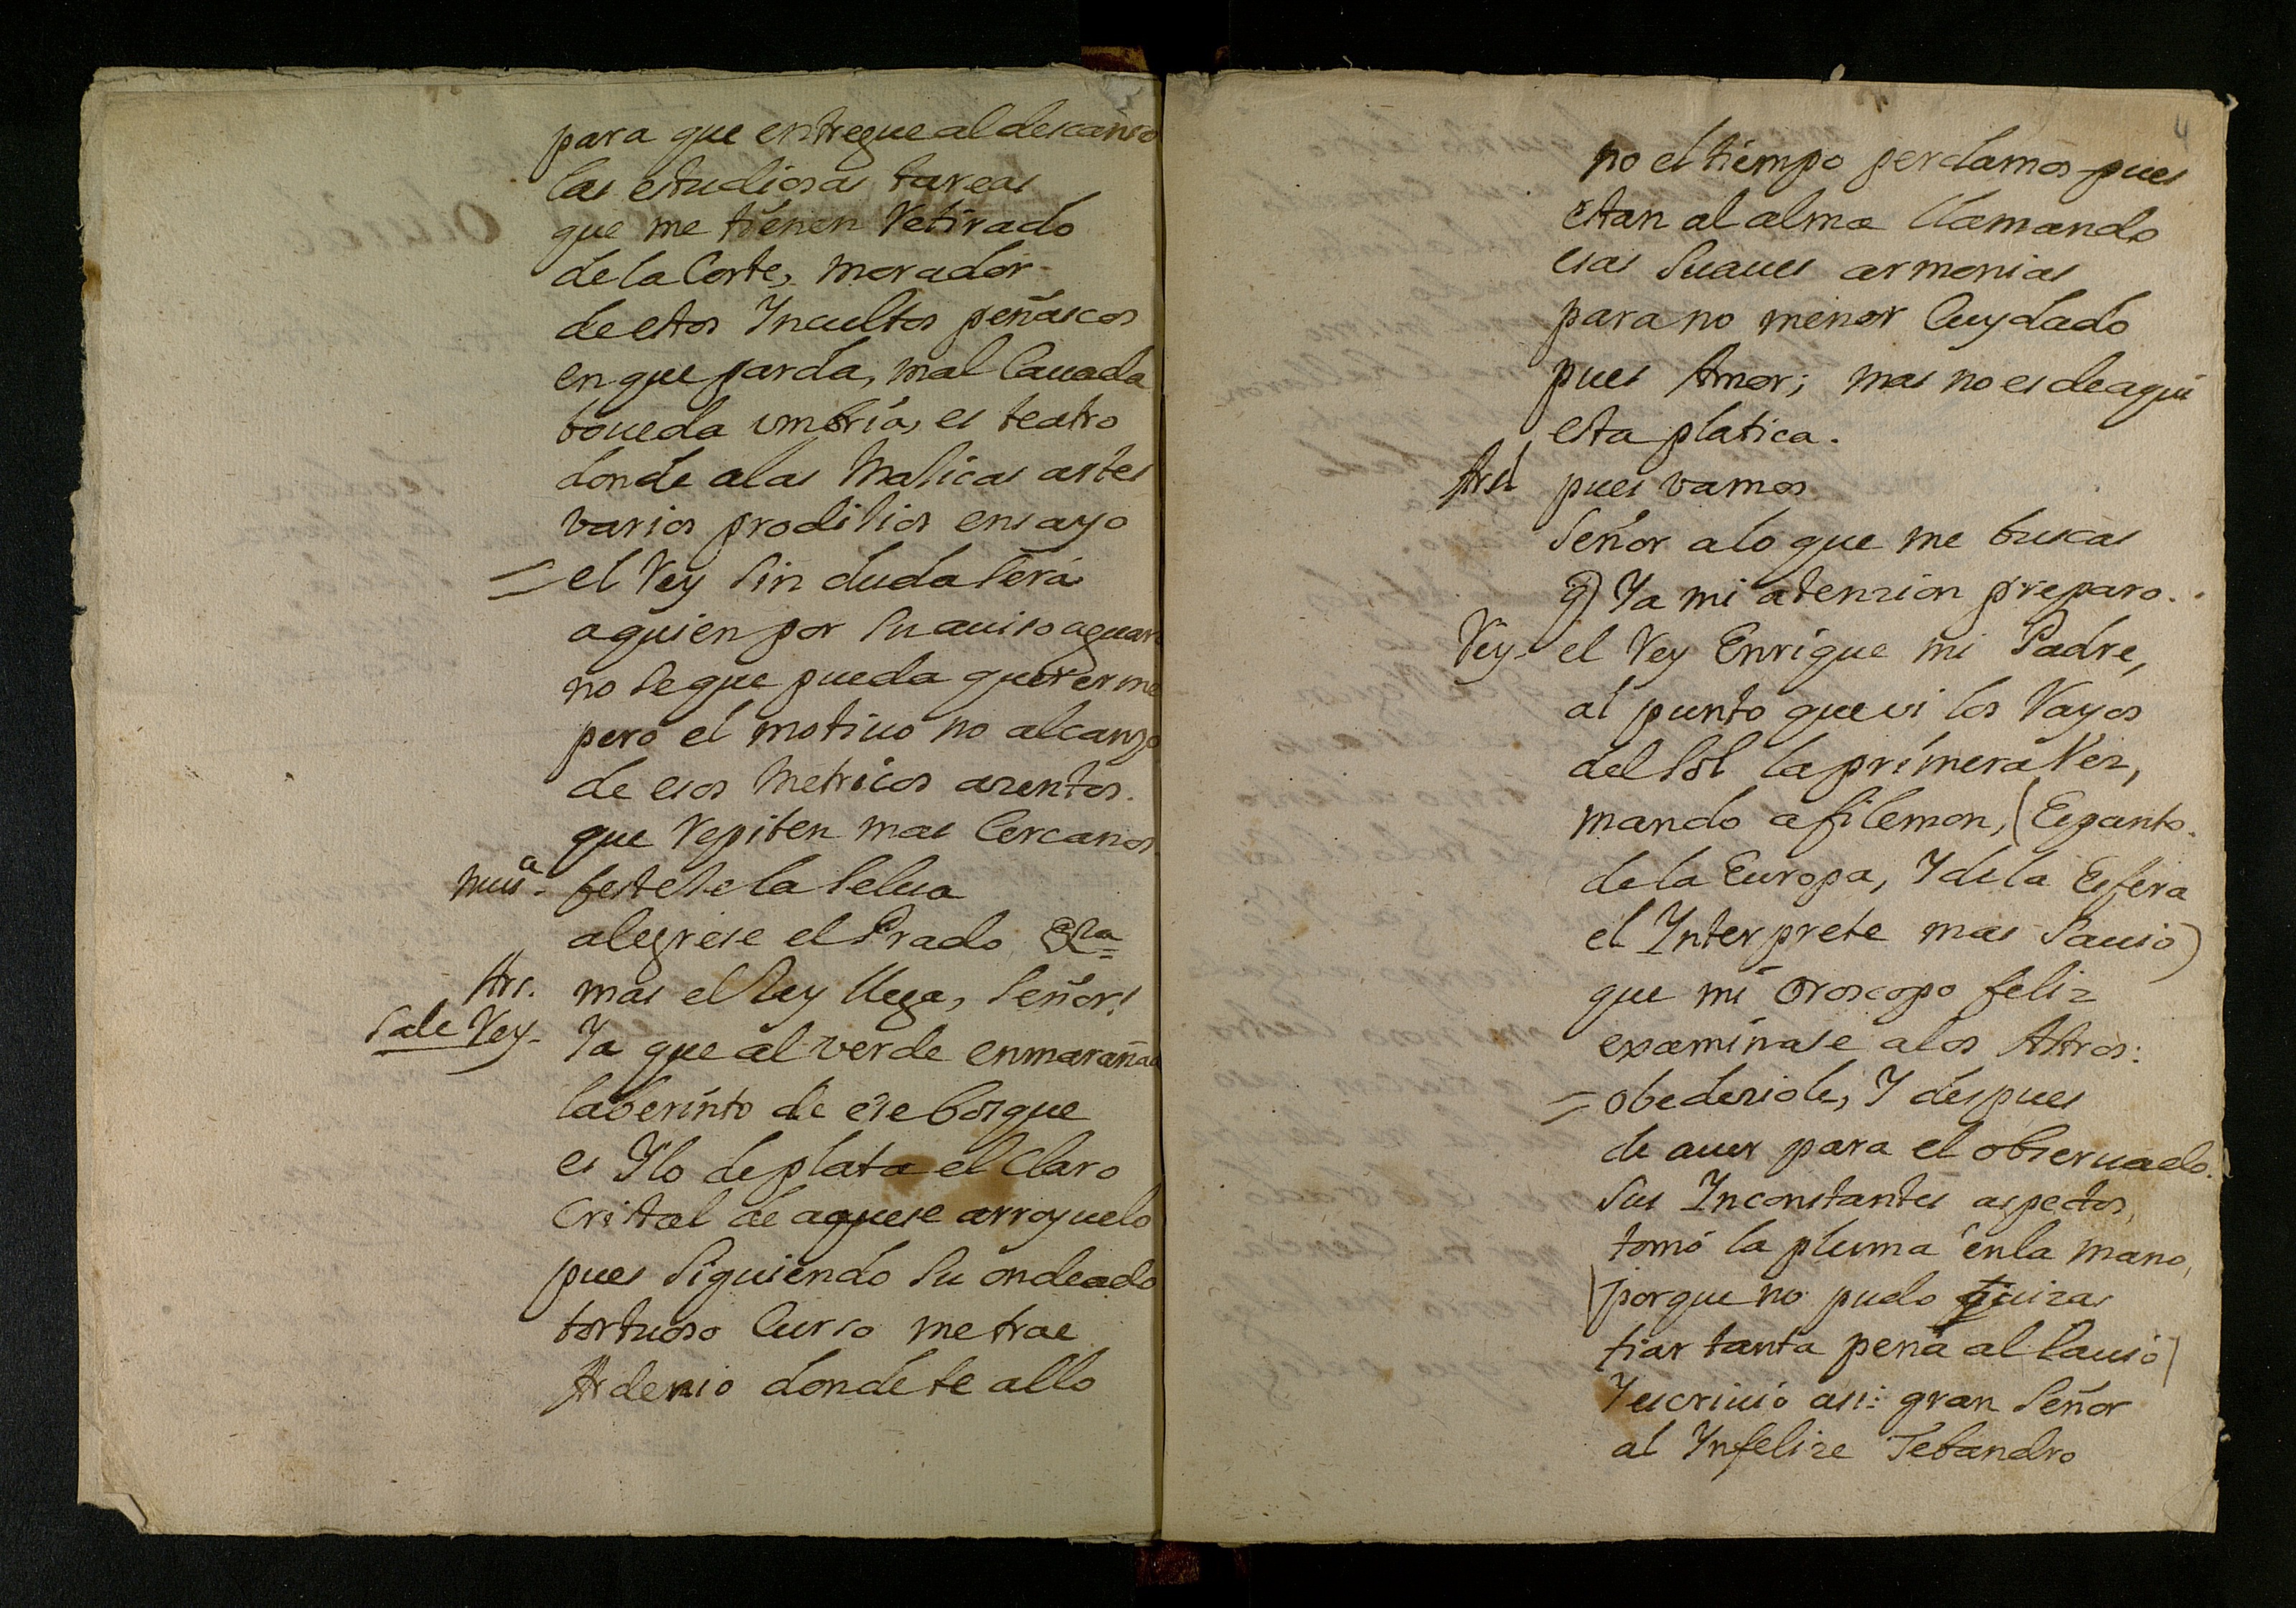 para que entregue al descanso
las estudiosas tareas
que me tienen Retirado
de la Corte, morador
de estos Incultos peñascos
en que parda, mal Cauada
boueda umbria, es teatro
donde a las Malicas artes
varios prodilios ensayo
= el Rey sin duda sera
a quien por su auiso aguar
no se que pueda quererme
pero el motiuo no alcanzo
de esos Metricos azentos.
que Repiten mas Cercanos
Mus.ª festese la selua
alegrese el Prado &ra=
Ars. mas el Rey llega, señor!
Sale Rey. Ya que al verde enmaraña
laberinto de ese bosque
es Ylo de plata el Claro
Cristal de aquese arroyuelo
pues siguiendo su ondeado
tortuoso Curso me trae
Ardenio donde te allo
4
no el tiempo perdamos pues
estan al alma llamando
esas suaues armonias
para no menor Cuydado
pues Amor; mas no es de aqui
esta platica.
Ars. pues vamos
señor a lo que me buscas
q) Ya mi atenzion preparo.
Rey- el Rey Enrique mi Padre,
al punto que vi los Rayos
del Sol la primera Vez,
mando a filemon, (Espanto.
de la Europa, Y de la Esfera
el Interprete mas sauio)
que mi Oroscopo feliz
examinase a los Astros:
= obedeziole, Y despues
de auer para el obseruado.
sus Inconstantes aspectos,
tomó la pluma en la mano,
(porque no pudo quizas
fiar tanta pena al lauio)
Y escriuio asi: gran Señor
al Infelize Tebandro